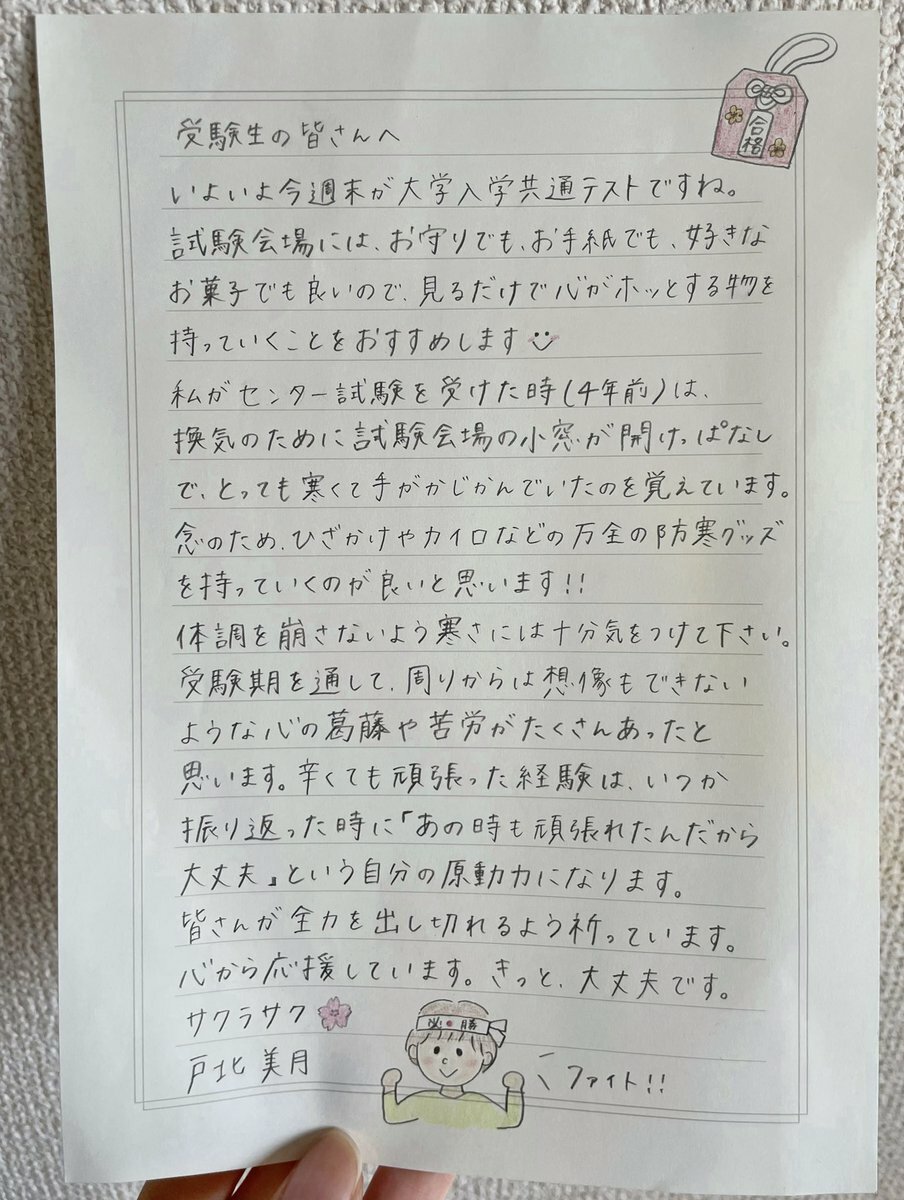 合格
受験生の皆さんへ
いよいよ今週末が大学入学共通テストですね。
試験会場には、お守りでも、お手紙でも、好きな
お菓子でも良いので、見るだけで心がホッとする物を
持っていくことをおすすめします
私がセンター試験を受けた時(4年前)は、
換気のために試験会場の小窓が開けっぱなし
で、とっても寒くて手がかじかんでいたのを覚えています。
念のため、ひざかけやカイロなどの万全の防寒グッズ
を持っていくのが良いと思います!!
体調を崩さないよう寒さには十分気をつけて下さい。
受験期を通して、周りからは想像もできない
ような心の葛藤や苦労がたくさんあったと
思います。辛くても頑張った経験は、いつか
振り返った時に「あの時も頑張れたんだから
大丈夫』という自分の原動力になります。
皆さんが全力を出し切れるよう祈っています。
心から応援しています。きっと、大丈夫です。
サクラサク
必勝
戸北美月
ファイト!!